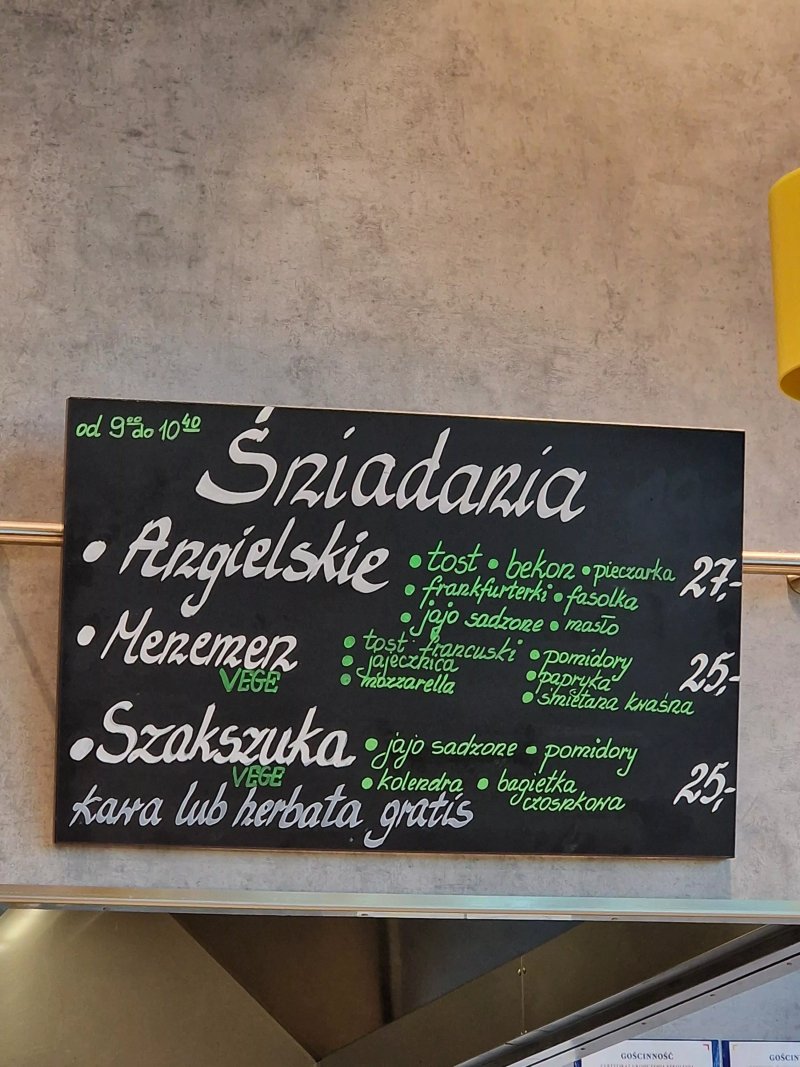 od 9⁰⁰ do 10⁴⁰
Śniadania
• Angielskie • tost • bekon • pieczarka 27,-
• frankfurterki • fasolka
• jajo sadzone • masło
• Menemen VEGE • tost francuski • pomidory 25,-
• jajecznica • papryka
• mozzarella • śmietana kwaśna
• Szakszuka VEGE • jajo sadzone • pomidory 25,-
• kolendra • bagietka czosnkowa
kawa lub herbata gratis
GOŚCINNOŚĆ
GOŚCIN